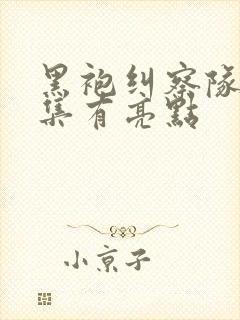 黑袍纠察隊
集有亮點
小京子